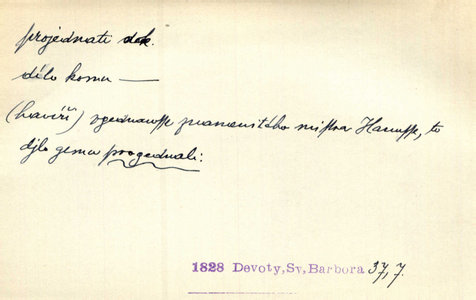 projednati dok.
dílo komu —
(havíři) vgednawsse znamenitého mistra Hanusse, to
djlo gemu progednali:
1828 Devoty, Sv, Barbora 37, 7.